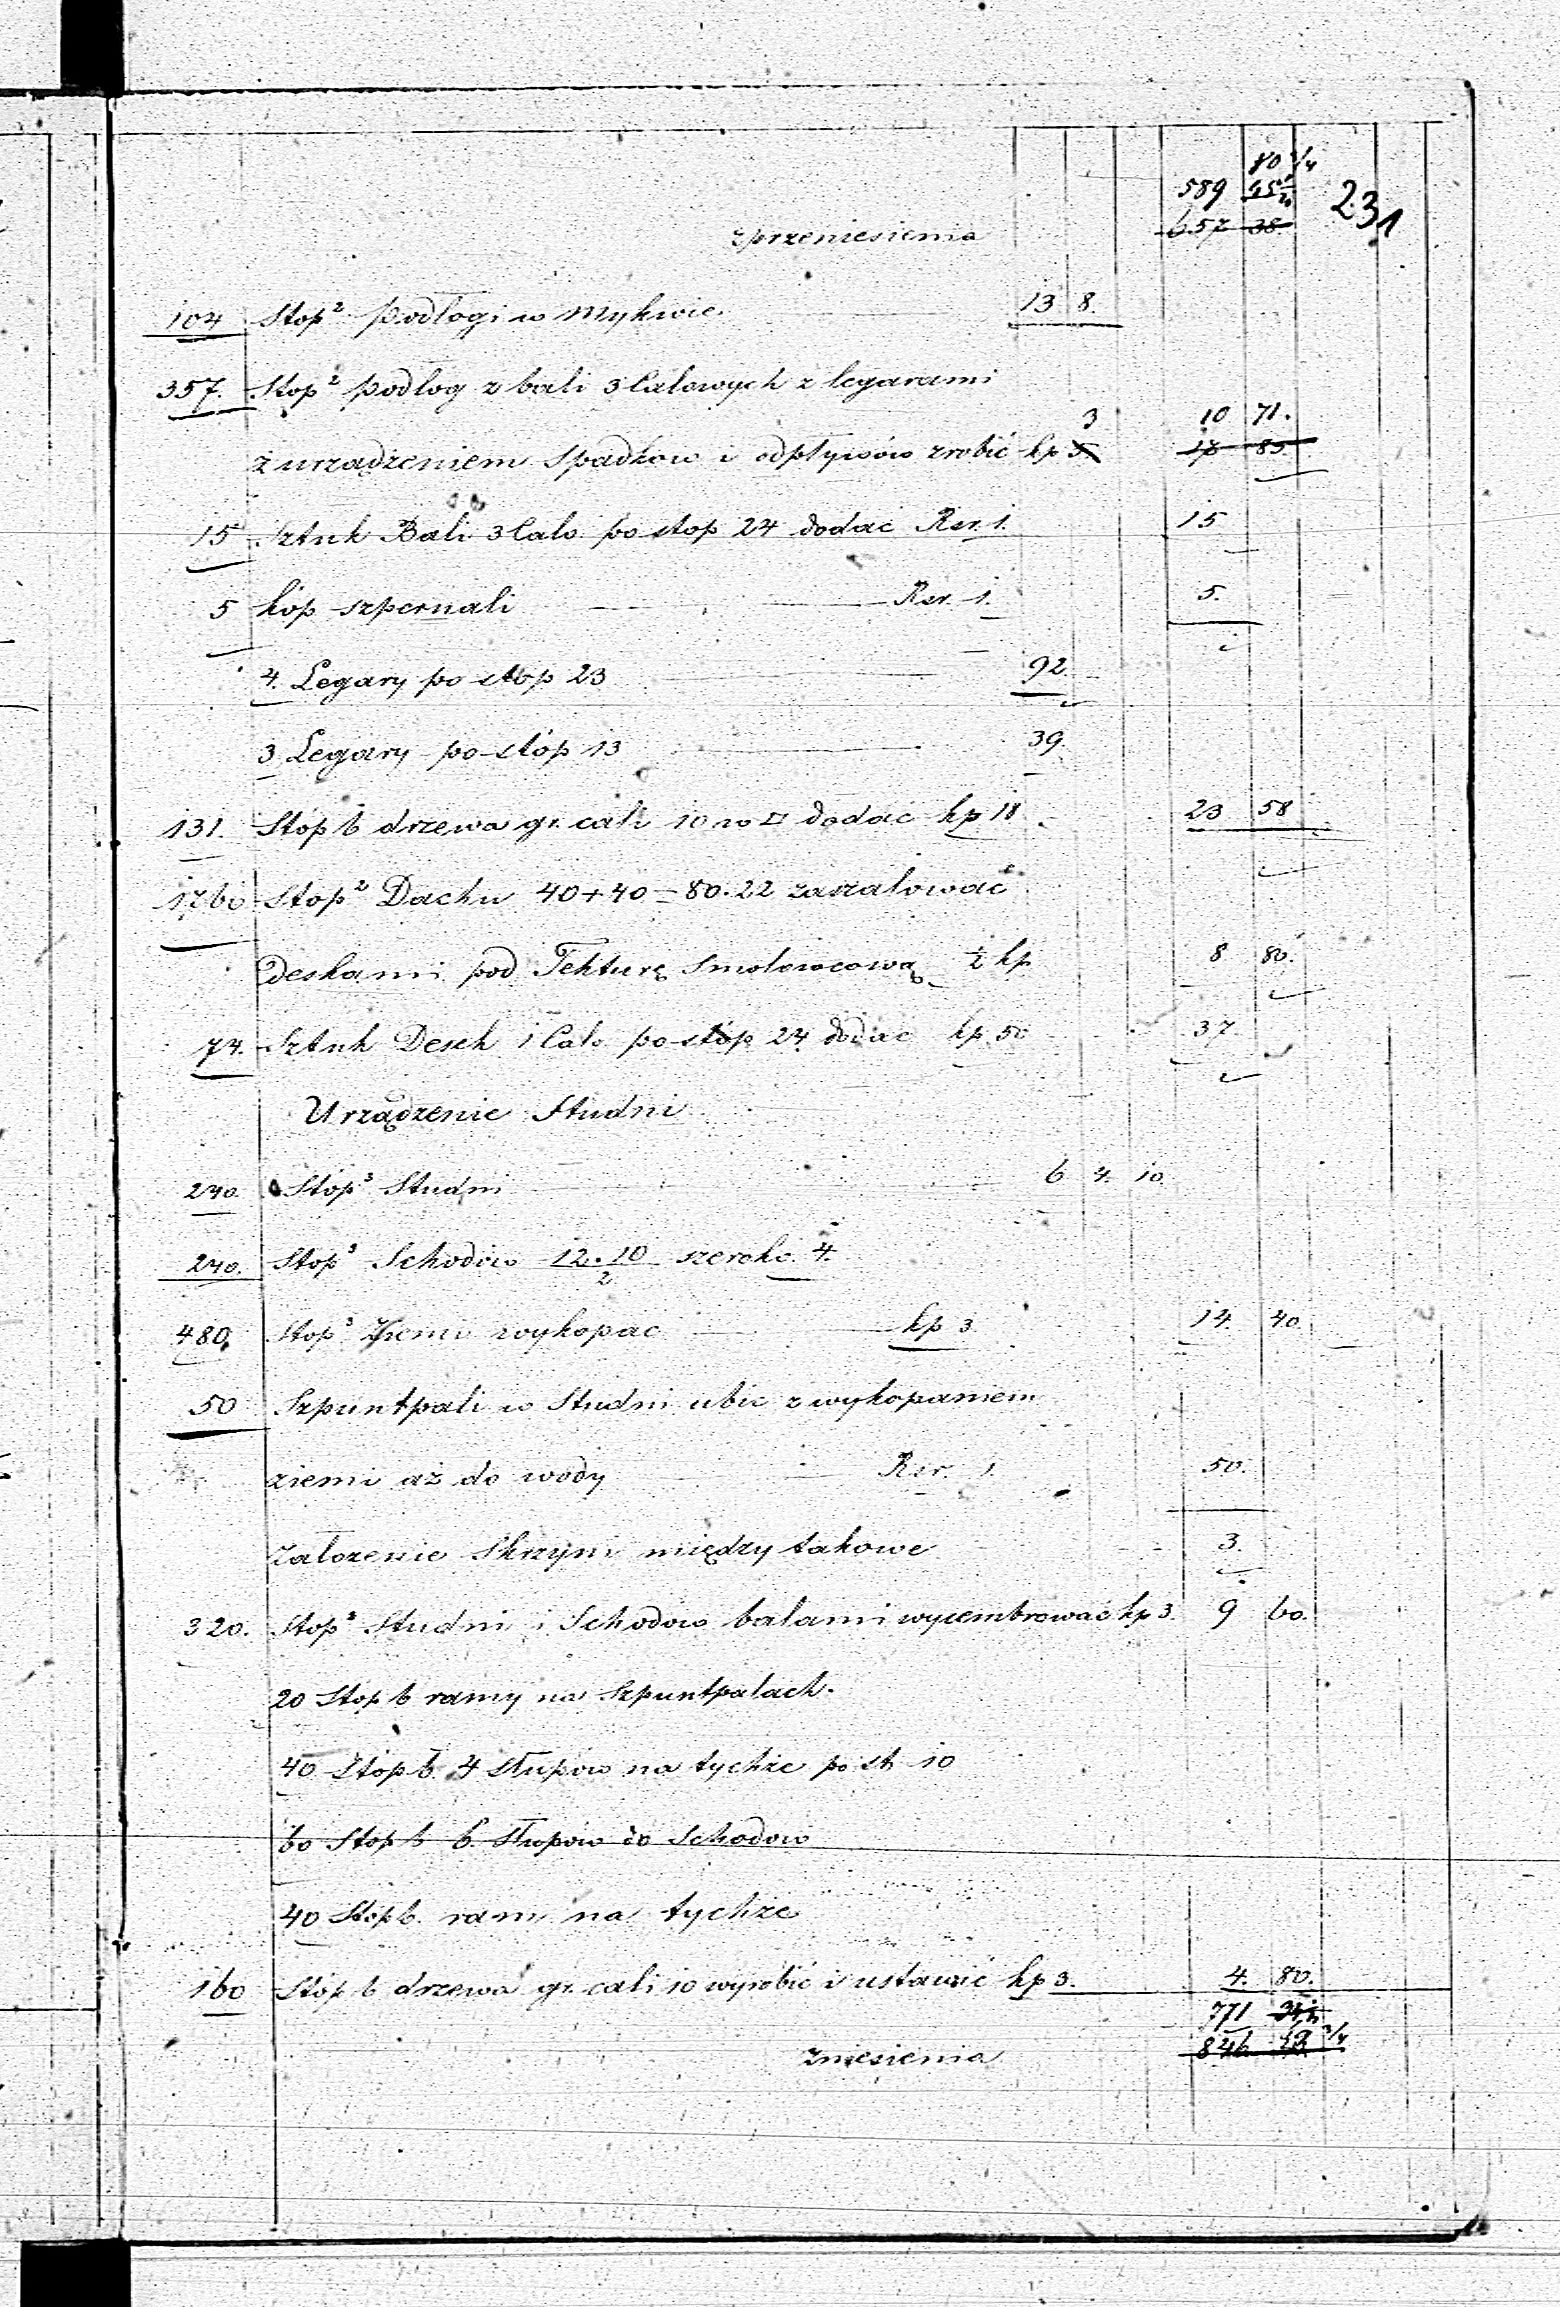 80 3/4
589 45
231
z przeniesienia 657 38
104 Stop² Podłogi w Mykwie 13 8.
357. Stop² podłog z bali 3 Calowych z legarami
3 10 71.
z urządzeniem Spadkow i odpływów zrobić kp 5 17 85
15 Sztuk Bali 3 Calo. po stop 24 dodać Rsr. 1. 15
5 kóp szpernali Rsr. 1. 5.
4. Legary po stóp 23 92
3 Legary po stóp 13 39.
131. Stóp b drzewa gr. cali 10 w □ dodać kp 18 23 58
1760 Stop² Dachu 40+40=80.22 zaszalować
Deskami pod Tekturę Smolowcową ½ kp 8 80.
74. Sztuk Desek 1 Calo po stóp 24 dodać kp 50 37
Urządzenie Studni
240. Stóp³ Studni 6 4. 10
240. Stóp³ Schodów 12.10/2 szeroko. 4.
480. Stop³ Ziemi wykopać kp 3 14. 40
50 Szpuntpali w Studni ubić z wykopaniem
ziemi aż do wody Rsr. 1. 50.
Założenie Skrzyni między takowe 3.
320. Stop² Studni i Schodow balami wycembrować kp 3. 9 60.
20 Stop b ramy na Szpuntpalach.
40 Stóp b. 4 słupow na tychże po st. 10
60 Stop b 6. słupow do Schodow
40 Stóp b. ram na tychże
160 Stóp b drzewa gr. cali 10 wyrobić i ustawić kp 3. 4. 80.
771
zniesienia 846